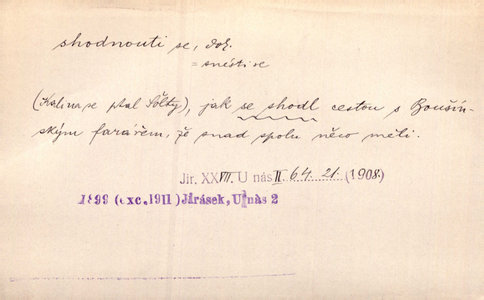 shodnouti se, dok.
= snésti se
(Kalina se ptal Šolty), jak se shodl cestou s Boušín-
ským farářem, že snad spolu něco měli.
Jir. XXVII. U nás II. 64. 21. (1908)
1899 (exc. 1911) Jirásek, U nás 2